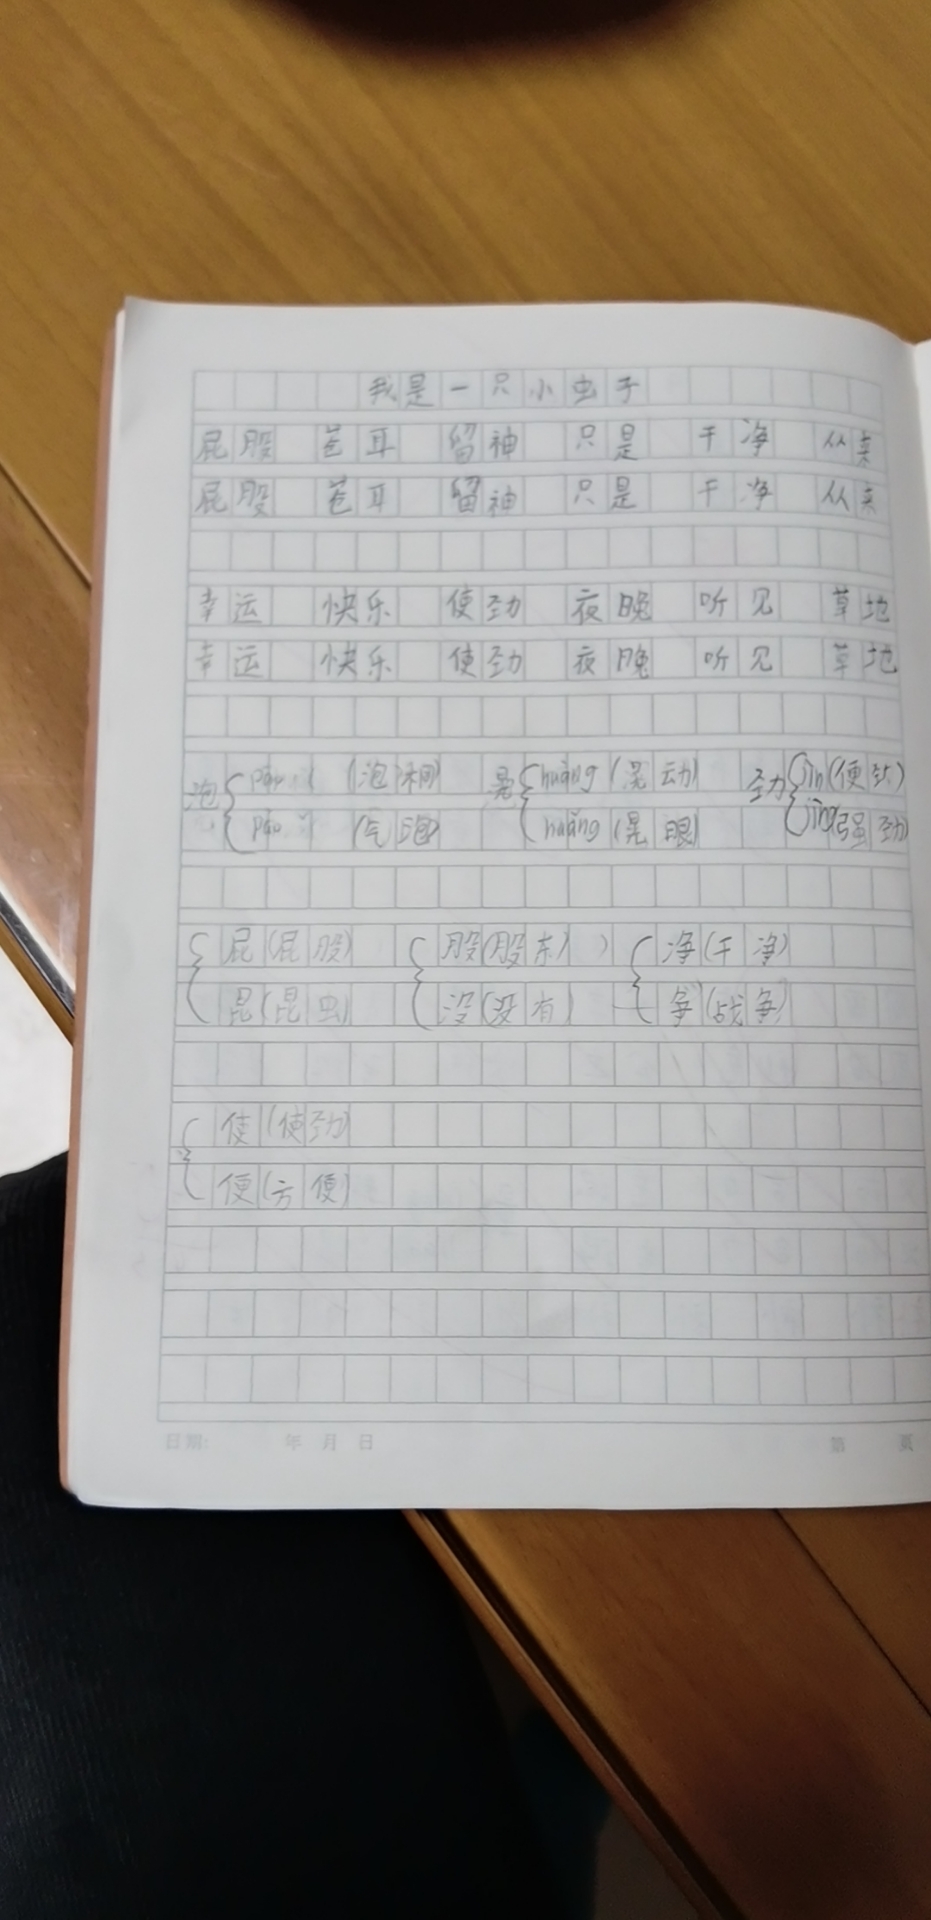 我是一只小虫子
屁股 苍耳 留神 只是 干净 从来
屁股 苍耳 留神 只是 干净 从来
幸运 快乐 使劲 夜晚 听见 草地
幸运 快乐 使劲 夜晚 听见 草地
泡 (泡桐) 晃 huàng (晃动) 劲 jìn (使劲)
(气泡) huǎng (晃眼) jìng (强劲)
屁 (屁股) 股 (股东) 净 (干净)
昆 (昆虫) 没 (没有) 争 (战争)
使 (使劲)
便 (方便)
日期: 年 月 日 第 页